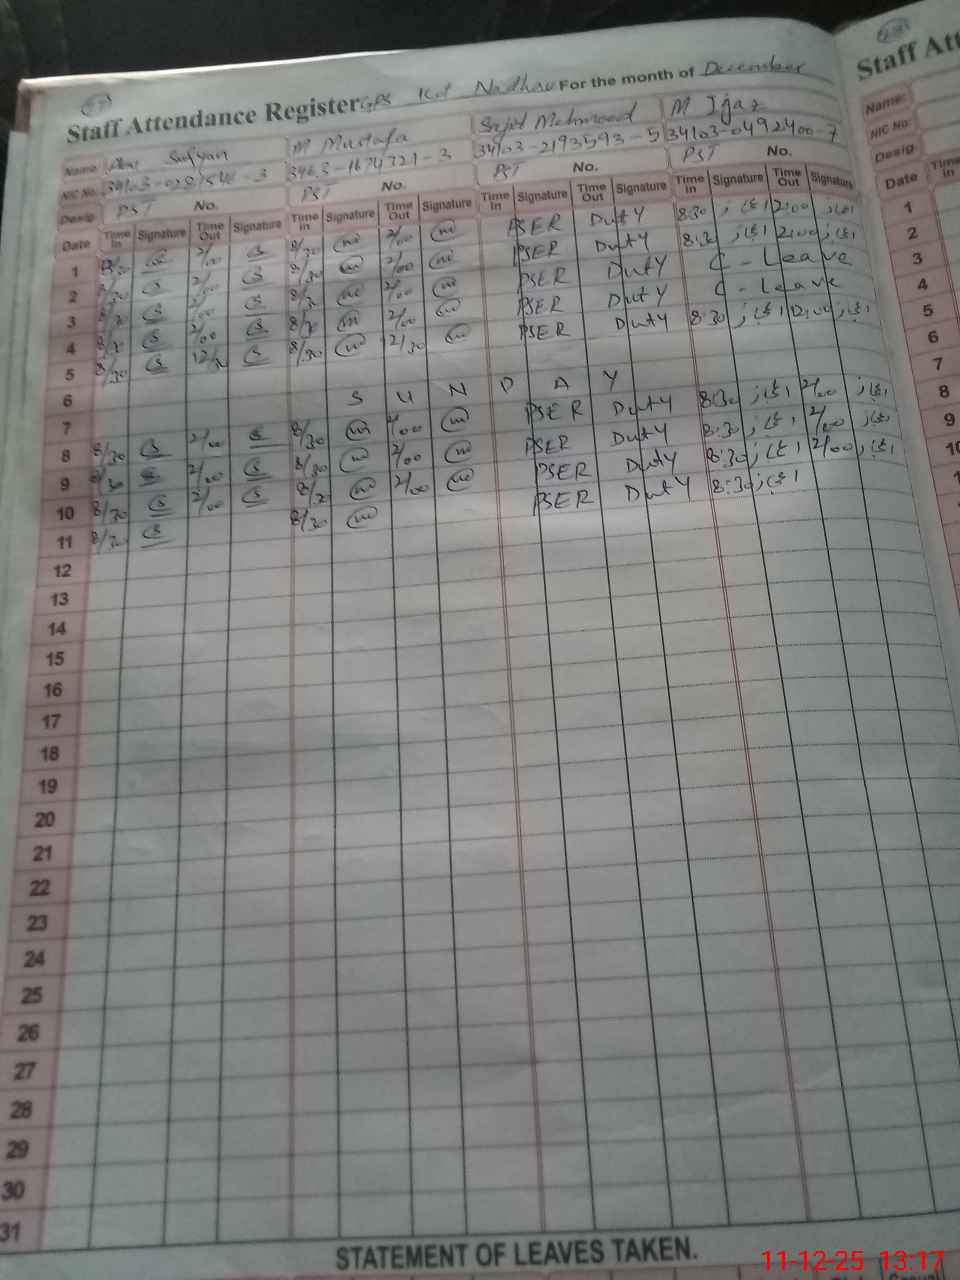 Staff Attendance Register GPS Kot Nadhau For the month of December
Staff Att
Name Sufyan M Mustafa Sajid Mehmood M Ijaz
Name:
NIC No. 34103-2193593-5 34103-0492400-7
NIC No.
Desig PST No. PST No. PST No. PST No.
Desig
Date Time In Signature Time Out Signature Time In Signature Time Out Signature Time In Signature Time Out Signature Time In Signature Time Out Signature
Date Time In
1 2/00 8/30 2/00 PSER Duty 8:30 اعجاز 2:00 اعجاز
2 8/30 2/00 8/30 2/00 PSER Duty 8:30 اعجاز 2:00 اعجاز
3 8/30 2/00 8/30 2/00 PSER Duty C - Leave
4 8/30 2/00 8/30 2/00 PSER Duty C - Leave
5 8/30 12/30 8/30 2/30 PSER Duty 8:30 اعجاز 12:00 اعجاز
6
7 S U N D A Y
8 8/30 2/00 8/30 2/00 PSER Duty 8:30 اعجاز 2/00 اعجاز
9 8/30 2/00 8/30 2/00 PSER Duty 8:30 اعجاز 2/00 اعجاز
10 8/30 2/00 8/30 2/00 PSER Duty 8:30 اعجاز 2/00 اعجاز
11 8/30 8/30 PSER Duty 8:30 اعجاز
12
13
14
15
16
17
18
19
20
21
22
23
24
25
26
27
28
29
30
31
1
2
3
4
5
6
7
8
9
10
STATEMENT OF LEAVES TAKEN.
11-12-25 13:17